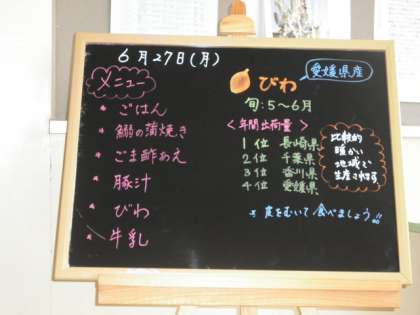 6月27日(月)
メニュー
* ごはん
* 鰯の蒲焼き
* ごま酢あえ
* 豚汁
* びわ
* 牛乳
びわ
愛媛県産
旬:5~6月
<年間出荷量>
1位 長崎県
2位 千葉県
3位 香川県
4位 愛媛県
比較的
暖かい
地域で
生産される
* 皮をむいて食べましょう!!